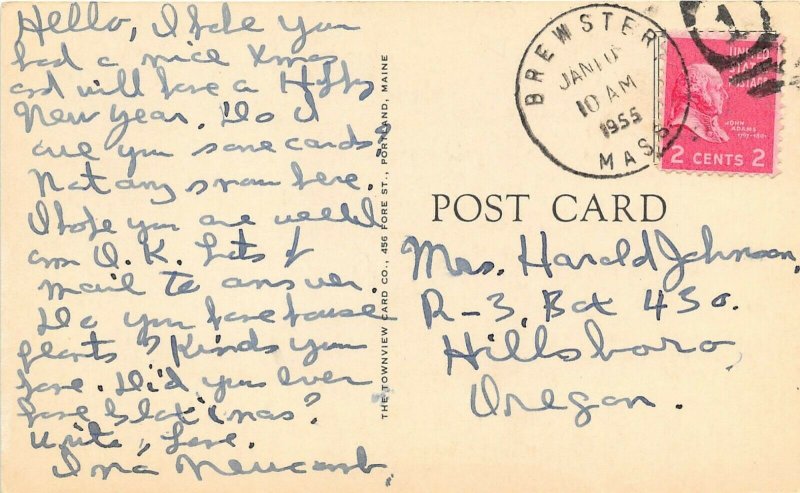 Hello, I hope you
had a nice Xmas
and will have a Happy
New Year. Do I
owe you some cards?
Not any snow here.
I hope you are well I
am O.K. Lots of
mail to answer.
Do you have house
plants? Kinds you
have. Did you ever
have
Write, Love.
Ina Newcomb
THE TOWNVIEW CARD CO., 456 FORE ST., PORTLAND, MAINE
BREWSTER,
JAN 10
10 AM
1955
MASS
1
UNITED
STATES
POSTAGE
JOHN
ADAMS
1797-1801
2 CENTS 2
POST CARD
Mrs. Harold Johnson,
R-3, Box 430.
Hillsboro,
Oregon.